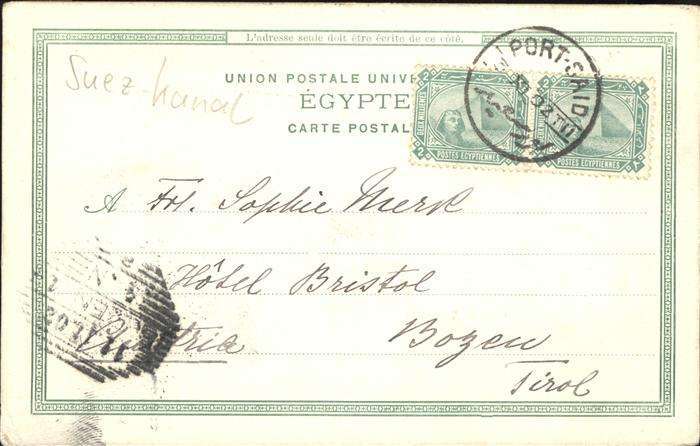 L'adresse seule doit être écrite de ce côté.
Suez-kanal
UNION POSTALE UNIVE
ÉGYPTE
CARTE POSTAL
PORT-SAID
POSTES EGYPTIENNES
POSTES EGYPTIENNES
A Frl. Sophie Merk
Hôtel Bristol
Bozen
tria
Tirol